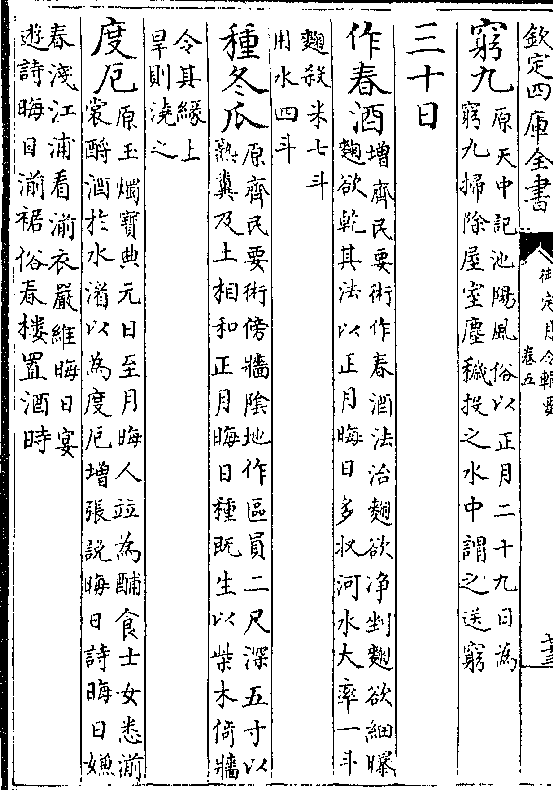 欽定四庫全書
御定月令輯要
卷五
窮九原天中記池陽風俗以正月二十九日為
窮九掃除屋室塵穢投之水中謂之送窮
三十日
作春酒增齊民要術作春酒法治麴欲净剉麴欲細曝
麴欲乾其法以正月晦日多收河水大率一斗
麴殺米七斗
用水四斗
種冬瓜原齊民要術傍牆陰地作區員二尺深五寸以
熟糞及土相和正月晦日種既生以柴木倚牆
令其緣上
旱則澆之
度厄原玉燭寶典元日至月晦人竝為酺食士女悉湔
裳酹酒於水湄以為度厄增張說晦日詩晦日嫌
春淺江浦看湔衣嚴維晦日宴
遊詩晦日湔裾俗春樓置酒時